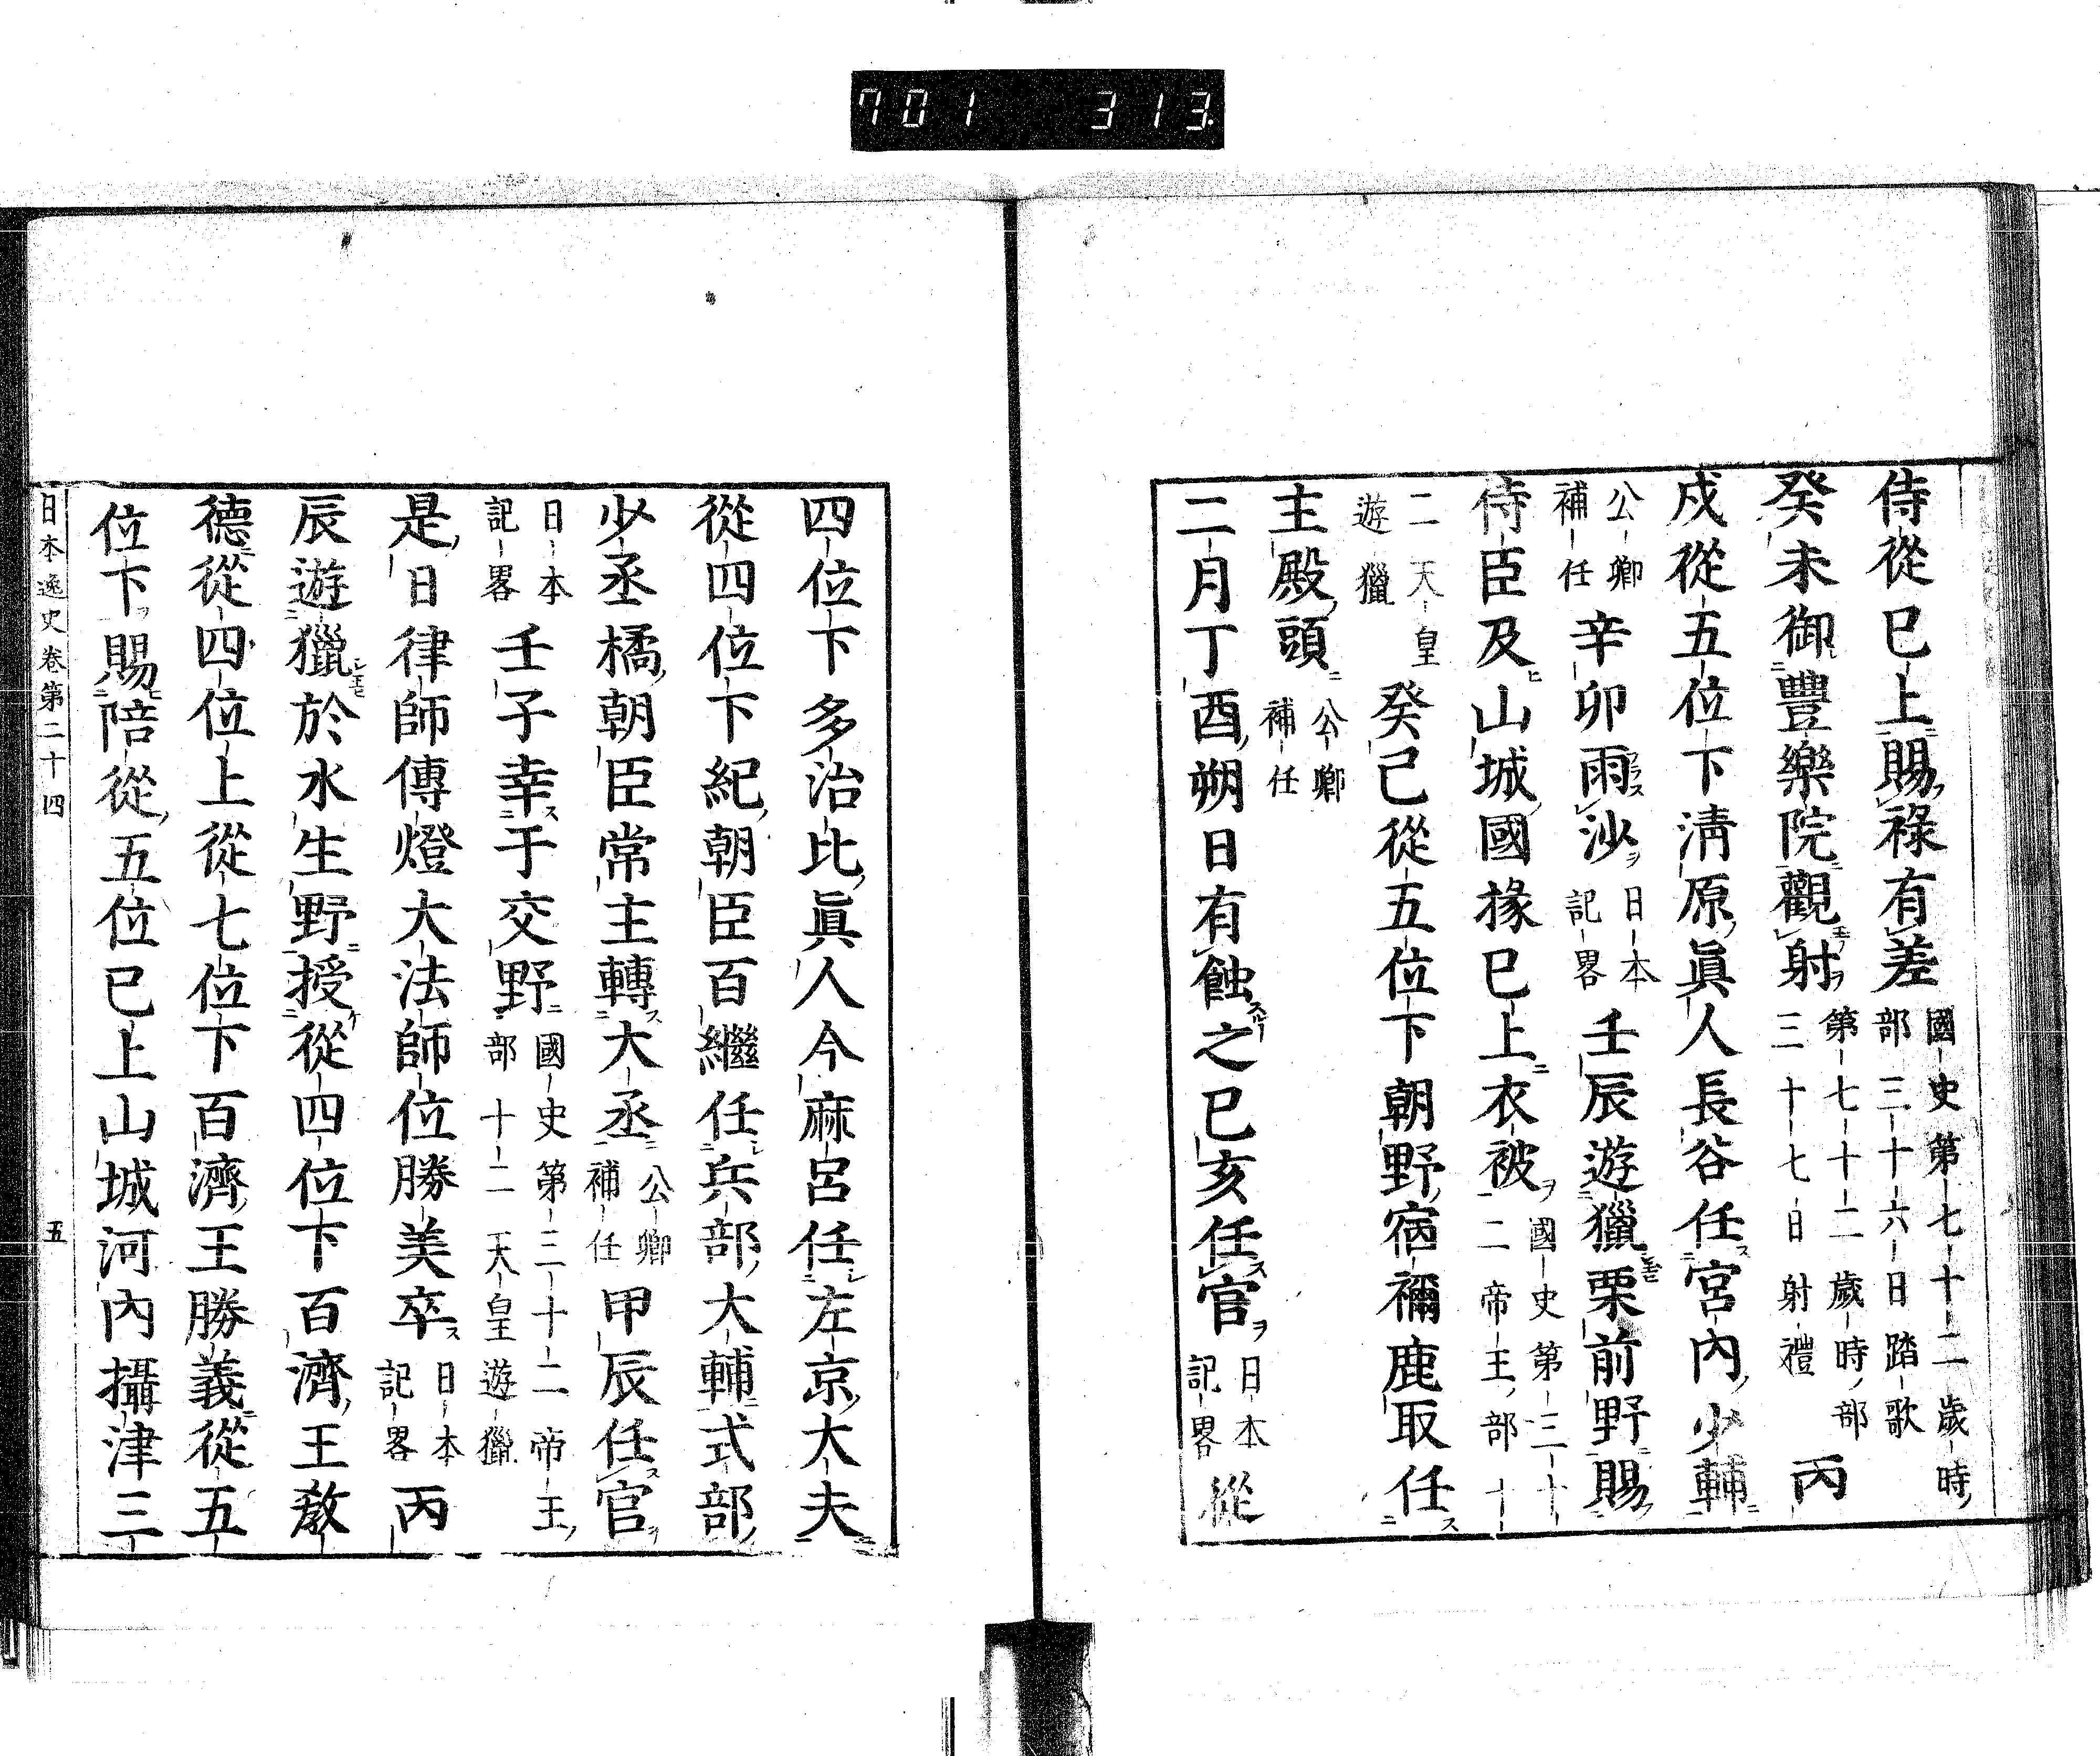 701 313
侍從已上賜祿有差國史第七十二歲時部三十六日踏歌
癸未御豐樂院觀射第七十二歲時部三十七日射禮丙
戌從五位下淸原眞人長谷任宮內少輔
公卿補任辛卯雨沙日本記畧壬辰遊獵栗前野賜
侍臣及山城國掾已上衣被國史第三十二帝王部十
二天皇遊獵癸已從五位下朝野宿禰鹿取任
主殿頭公卿補任
二月丁酉朔日有蝕之已亥任官日本記畧從
四位下多治比眞人今麻呂任左京大夫
從四位下紀朝臣百繼任兵部大輔式部
少丞橘朝臣常主轉大丞公卿補任甲辰任官
日本記畧壬子幸于交野國史第三十二帝王部十二天皇遊獵
是日律師傳燈大法師位勝美卒日本記畧丙
辰遊獵於水生野授從四位下百濟王敎
德從四位上從七位下百濟王勝義從五
位下賜陪從五位已上山城河內攝津三
日本逸史卷第二十四 五